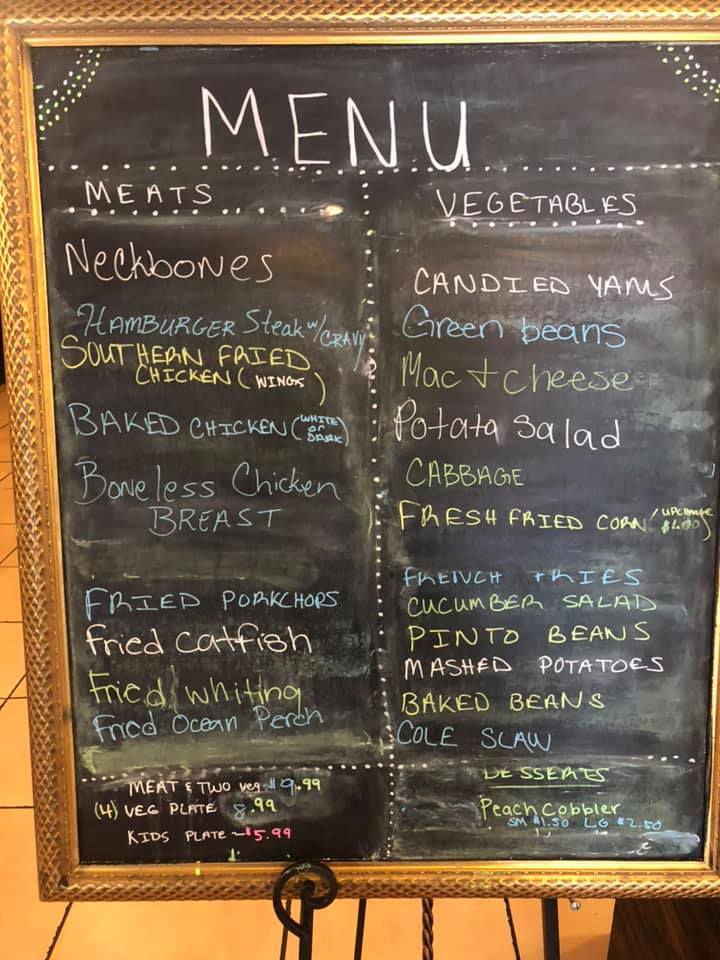 MENU
MEATS
Neckbones
HAMBURGER Steak w/ GRAVY
SOUTHERN FRIED
CHICKEN (WINGS)
BAKED CHICKEN (WHITE or DARK)
Boneless Chicken
BREAST
FRIED PORKCHOPS
Fried Catfish
Fried Whiting
Fried Ocean Perch
MEAT & TWO veg $9.99
(4) VEG PLATE 8.99
KIDS PLATE ~ $5.99
VEGETABLES
CANDIED YAMS
Green beans
Mac + cheese
Potata Salad
CABBAGE
FRESH FRIED CORN / UPCHARGE $1.00
FRENCH FRIES
CUCUMBER SALAD
PINTO BEANS
MASHED POTATOES
BAKED BEANS
COLE SLAW
DESSERTS
Peach Cobbler
SM $1.50 LG $2.50